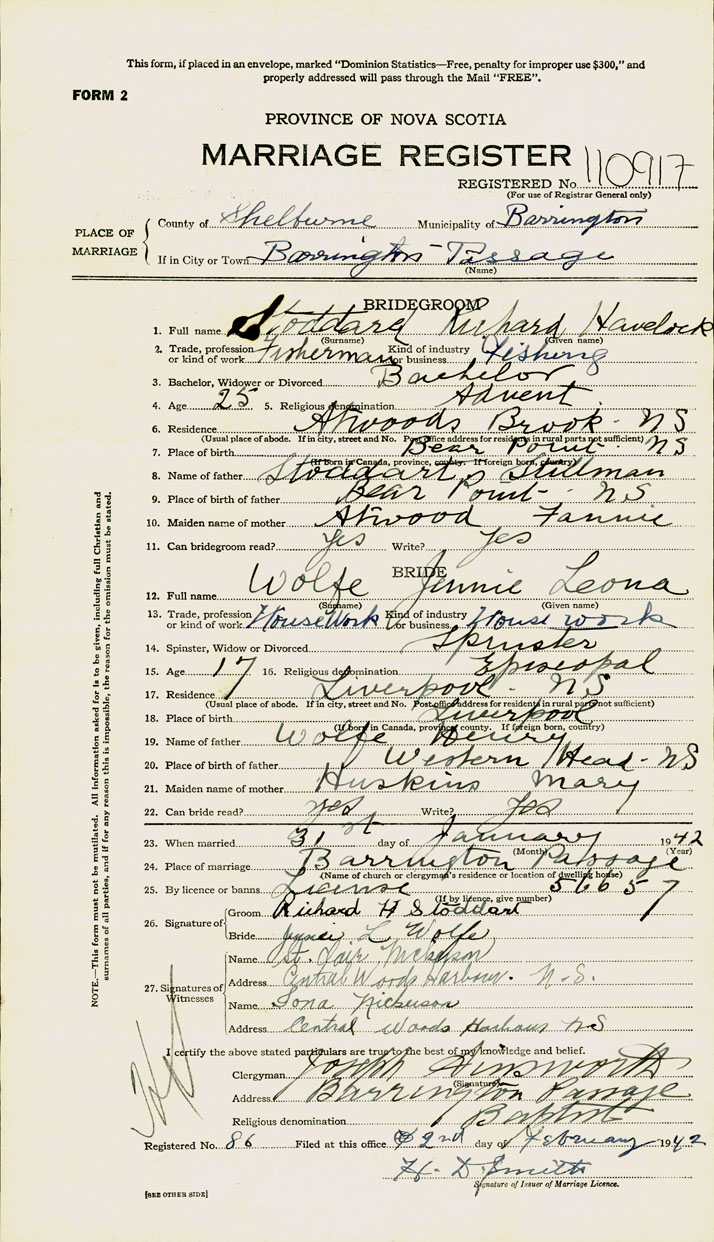 This form, if placed in an envelope, marked "Dominion Statistics—Free, penalty for improper use $300," and
properly addressed will pass through the Mail "FREE".
FORM 2
PROVINCE OF NOVA SCOTIA
MARRIAGE REGISTER
REGISTERED No. 110917
(For use of Registrar General only)
PLACE OF MARRIAGE
County of Shelburne Municipality of Barrington
If in City or Town Barrington Passage
(Name)
BRIDEGROOM
1. Full name Stoddard Richard Havelock
(Surname) (Given name)
2. Trade, profession or kind of work Fisherman Kind of industry or business Fishing
3. Bachelor, Widower or Divorced Bachelor
4. Age 25 5. Religious denomination Advent
6. Residence Atwoods Brook - NS
(Usual place of abode. If in city, street and No. Post office address for residents in rural parts not sufficient)
7. Place of birth Bear Point - NS
(If born in Canada, province, county. If foreign born, country)
8. Name of father Stoddart, Stillman
9. Place of birth of father Bear Point - NS
10. Maiden name of mother Atwood Fannie
11. Can bridegroom read? Yes Write? Yes
BRIDE
12. Full name Wolfe Jennie Leona
(Surname) (Given name)
13. Trade, profession or kind of work HouseWork Kind of industry or business House work
14. Spinster, Widow or Divorced Spinster
15. Age 17 16. Religious denomination Episcopal
17. Residence Liverpool - NS
(Usual place of abode. If in city, street and No. Post office address for residents in rural parts not sufficient)
18. Place of birth Liverpool
(If born in Canada, province, county. If foreign born, country)
19. Name of father Wolfe Henry
20. Place of birth of father Western Head - NS
21. Maiden name of mother Huskins Mary
22. Can bride read? yes Write? yes
23. When married 31st day of January 1942
(Month) (Year)
24. Place of marriage Barrington Passage
(Name of church or clergyman's residence or location of dwelling house)
25. By licence or banns License 56657
(If by licence, give number)
26. Signature of
Groom Richard H Stoddart
Bride L. Wolfe
27. Signatures of Witnesses
Name St. Clair Nickerson
Address Central Woods Harbour. N.S.
Name Nickerson
Address Central Woods Harbour NS
I certify the above stated particulars are true to the best of my knowledge and belief.
Clergyman Joseph
(Signature)
Address Barrington Passage
Religious denomination Baptist
Registered No. 86 Filed at this office 2nd day of February 1942
H. D. Smith
Signature of Issuer of Marriage Licence.
[SEE OTHER SIDE]
NOTE.—This form must not be mutilated. All information asked for is to be given, including full Christian and
surnames of all parties, and if for any reason this is impossible, the reason for the omission must be stated.